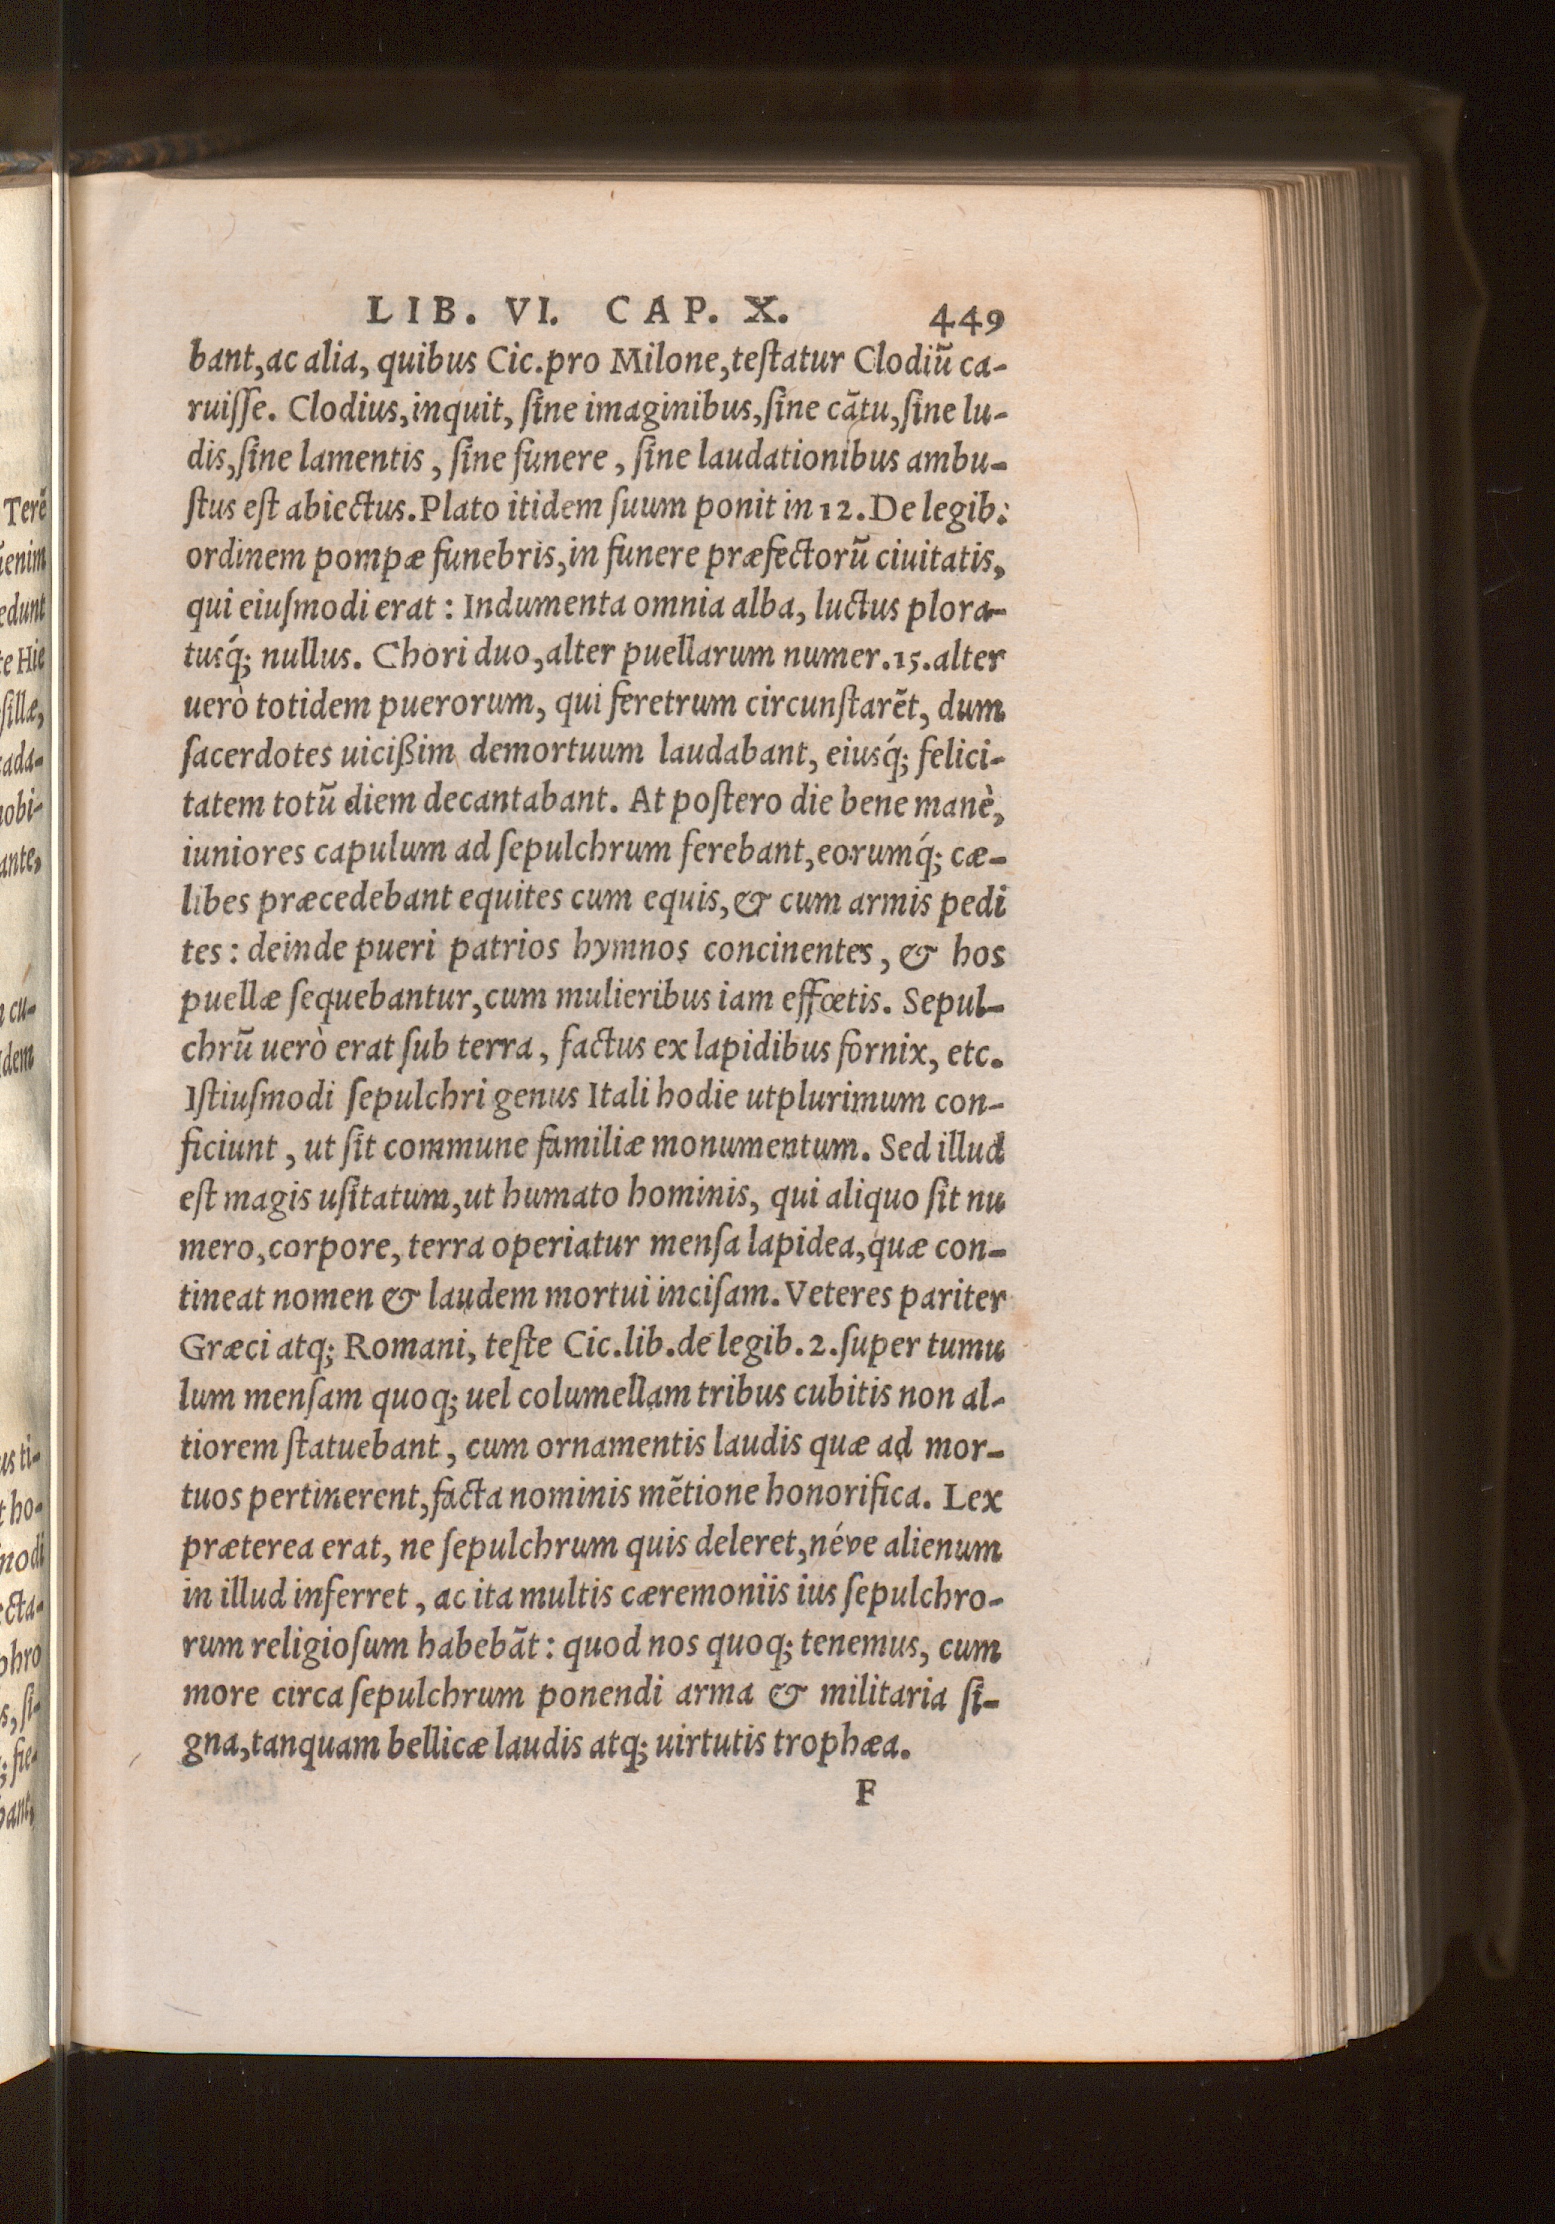 LIB. VI. CAP. X. 449
bant, ac alia, quibus Cic. pro Milone, teſtatur Clodiũ ca-
ruiſſe. Clodius, inquit, ſine imaginibus, ſine cãtu, ſine lu-
dis, ſine lamentis, ſine funere, ſine laudationibus ambu-
ſtus eſt abiectus. Plato itidem ſuum ponit in 12. De legib:
ordinem pompæ funebris, in funere præfectorũ ciuitatis,
qui eiuſmodi erat: Indumenta omnia alba, luctus plora-
tusq́; nullus. Chori duo, alter puellarum numer. 15. alter
uerò totidem puerorum, qui feretrum circunſtarẽt, dum
ſacerdotes uicißim demortuum laudabant, eiusq́; felici-
tatem totũ diem decantabant. At poſtero die bene manè,
iuniores capulum ad ſepulchrum ferebant, eorumq́; cæ-
libes præcedebant equites cum equis, & cum armis pedi
tes: deinde pueri patrios hymnos concinentes, & hos
puellæ ſequebantur, cum mulieribus iam effœtis. Sepul-
chrũ uerò erat ſub terra, factus ex lapidibus fornix, etc.
Iſtiuſmodi ſepulchri genus Itali hodie utplurimum con-
ficiunt, ut ſit commune familiæ monumentum. Sed illud
eſt magis uſitatum, ut humato hominis, qui aliquo ſit nu
mero, corpore, terra operiatur menſa lapidea, quæ con-
tineat nomen & laudem mortui inciſam. Veteres pariter
Græci atq; Romani, teſte Cic. lib. de legib. 2. ſuper tumu
lum menſam quoq; uel columellam tribus cubitis non al-
tiorem ſtatuebant, cum ornamentis laudis quæ ad mor-
tuos pertinerent, facta nominis mẽtione honorifica. Lex
præterea erat, ne ſepulchrum quis deleret, néve alienum
in illud inferret, ac ita multis cæremoniis ius ſepulchro-
rum religioſum habebãt: quod nos quoq; tenemus, cum
more circa ſepulchrum ponendi arma & militaria ſi-
gna, tanquam bellicæ laudis atq; uirtutis trophæa.
F